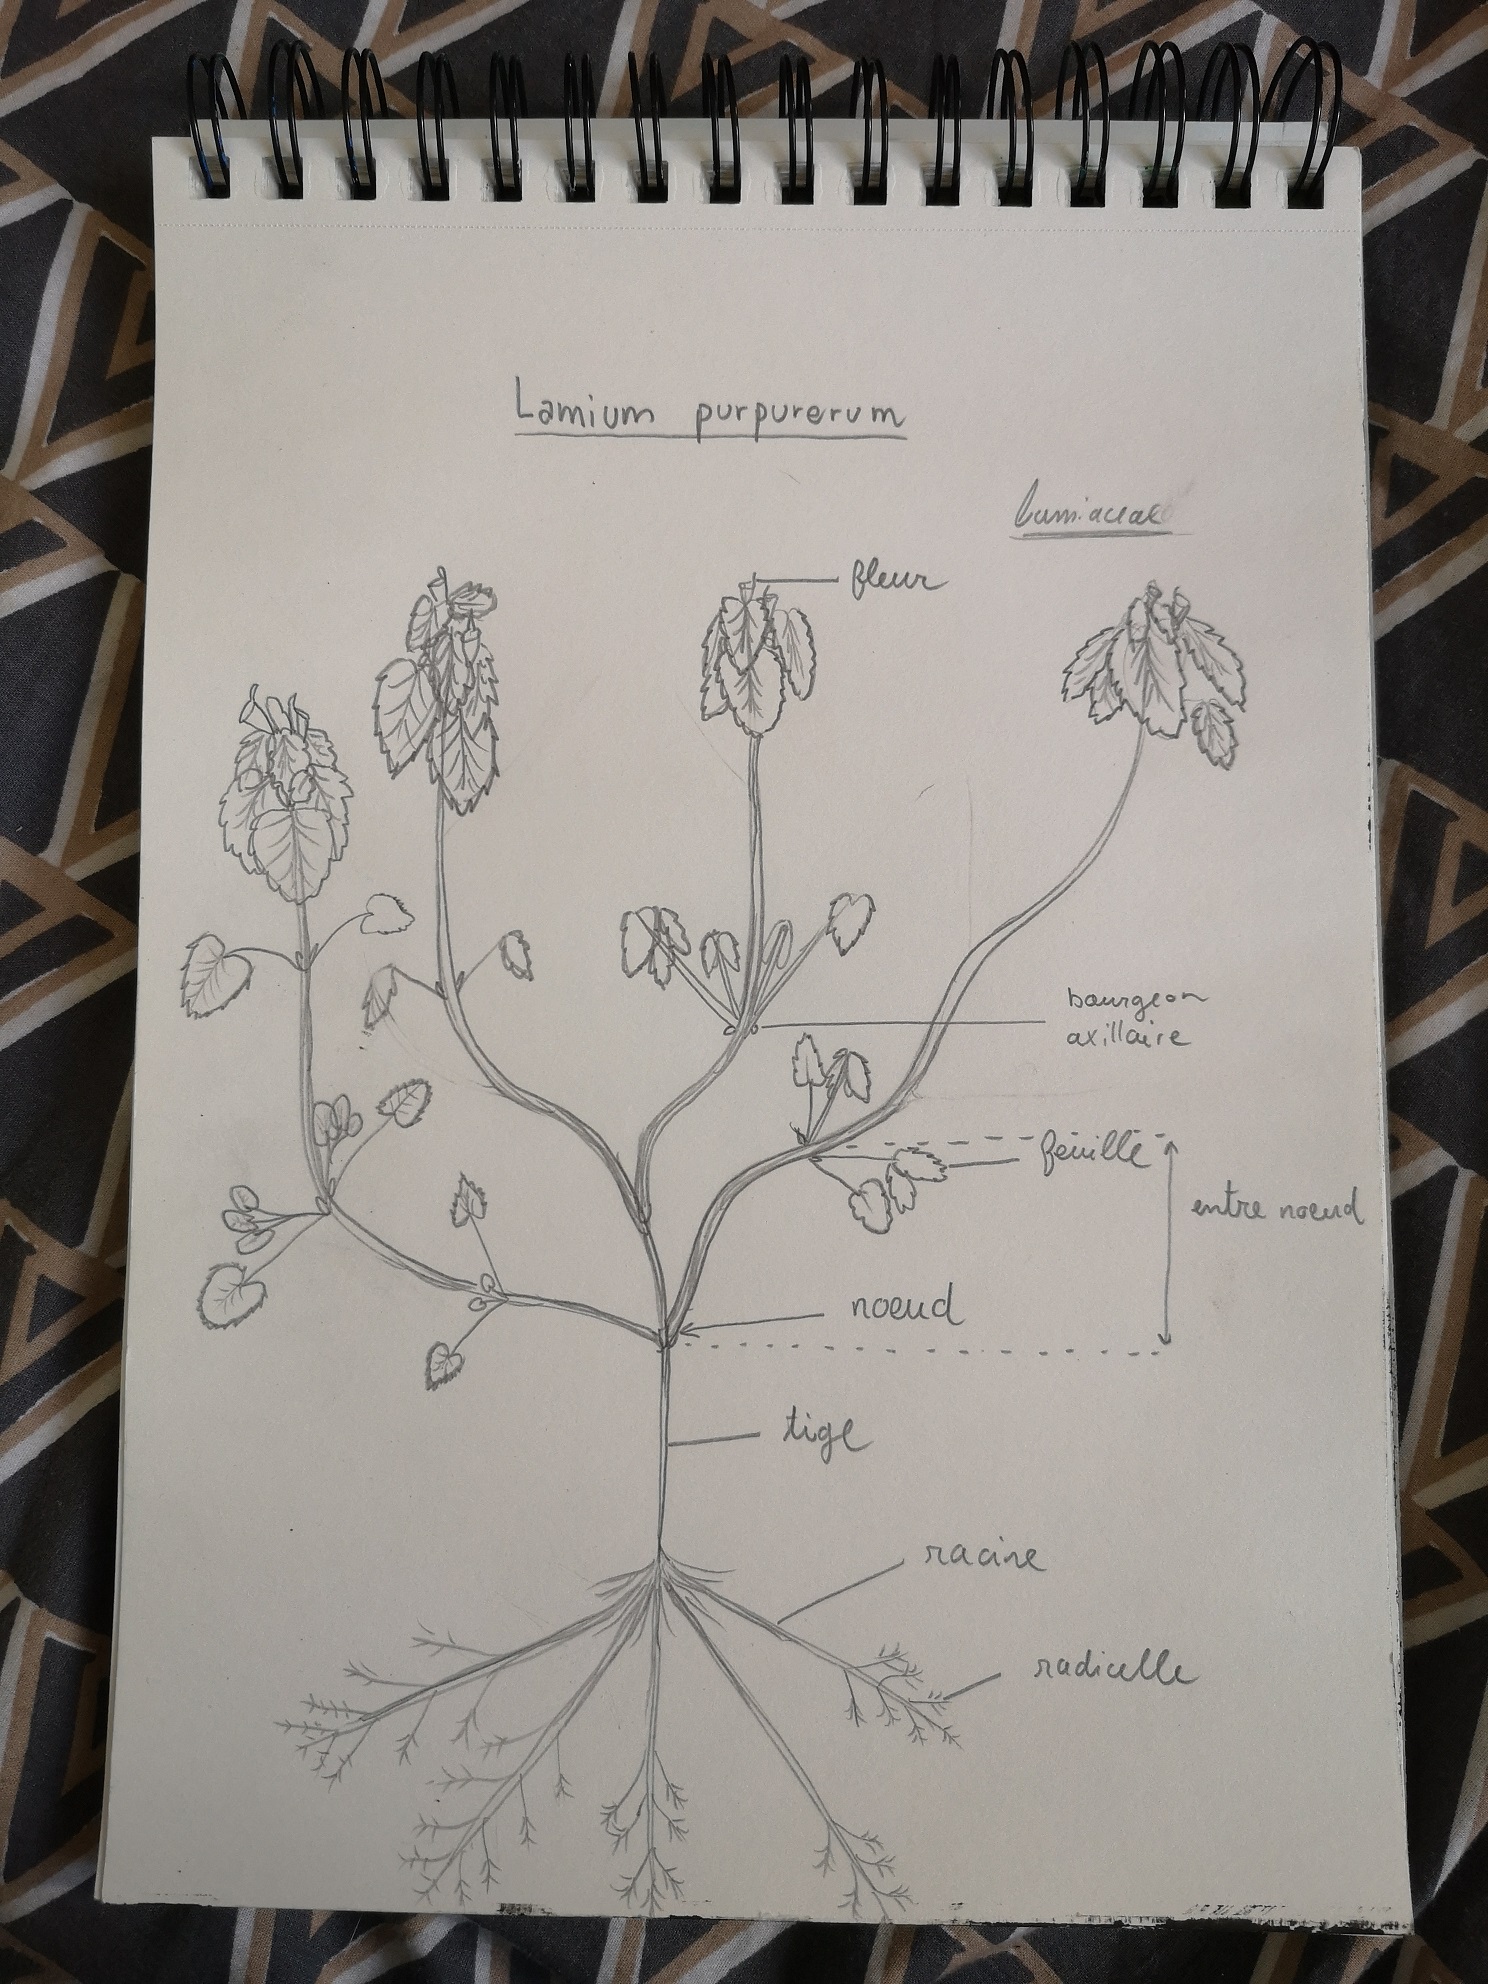 Lamium purpurerum
Lamiaceae
fleur
bourgeon
axillaire
feuille
entre noeud
noeud
tige
racine
radicelle